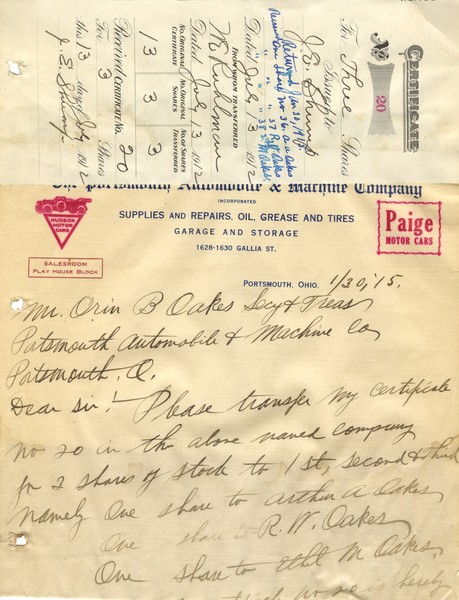 CERTIFICATE
No 20
For Three Shares
Issued to
J. E. Shump
Dated July 13 1912
Returned Jan 30, 1915
FROM WHOM TRANSFERRED
M. Ruhlman
Dated July 3 1912
NO. ORIGINAL CERTIFICATE
NO. ORIGINAL SHARES
NO. OF SHARES TRANSFERRED
13
3
3
Received Certificate No. 20
For 3 Shares
this 13 day of July 1912
J. E. Shump
The Portsmouth Automobile & Machine Company
INCORPORATED
SUPPLIES AND REPAIRS, OIL, GREASE AND TIRES
GARAGE AND STORAGE
1628-1630 GALLIA ST.
HUDSON
MOTOR
CARS
SALESROOM
PLAY HOUSE BLOCK
Paige
MOTOR CARS
PORTSMOUTH, OHIO, 1/30,'15.
Mr. Orin B Oakes Secy & Treas
Portsmouth Automobile & Machine Co
Portsmouth. O.
Dear Sir! Please transfer my Certificate
No 20 in the above named Company
for 3 shares of stock to 1st, second & third
Namely One share to Arthur A Oakes
One share to R. W. Oakes
One share to Ethel M Oakes
no 20 is hereby